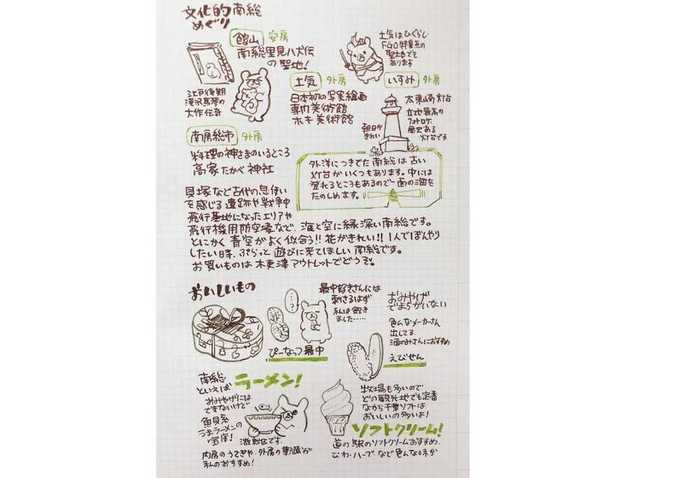 文化的南総
めぐり
館山 安房
南総里見八犬伝
の聖地!
江戸後期
滝沢馬琴の
大作伝奇
土気はひぐらし
土気 外房
日本初の写実絵画
専門美術館
ホキ美術館
いすみ 外房
太東崎灯台
朝日が
きれい
南房総市 外房
料理の神さまのいるところ
高家たかべ神社
外洋につきでた南総は古い
灯台がいくつもあります。中には
登れるところもあるので一面の海を
たのしめます。
貝塚など古代の息使い
を感じる遺跡や戦争中
飛行基地になったエリアや
飛行機用防空壕など、海と空に縁深い南総です。
とにかく青空がよく似合う!!花がきれい!!1人でぼんやり
したい日は、ぷらっと遊びに来てほしい南総です。
お買いものは木更津アウトレットでどうぞ。
おいしいもの
最中好きさんには
刺さるはず
私は刺さ
りました……
ぴーなっつ最中
おみやげ
でまちがいない
色んなメーカーさん
出してる
酒のみさんにおすすめ
えびせん
南総
といえば
ラーメン!
おみやげには
できないけど
魚貝系
ラーメンの
宝庫!
激戦区です
私のおすすめ!
牧場も多いので
どの観光地でも定番
ながら千葉ソフトは
おいしいの多いよ!
ソフトクリーム!
道の駅のソフトクリームおすすめ
びわ・ハーブなど色んな味が